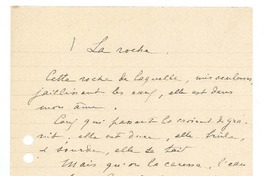 La roche.
Cette roche de laquelle, mis seulement,
jaillissent les eaux, elle est dans
mon âme.
Ceux qui passent la croient de gra-
nit, elle est dure, elle brûle,
sourde, elle se tait
Mais qu'on la caresse, l'eau